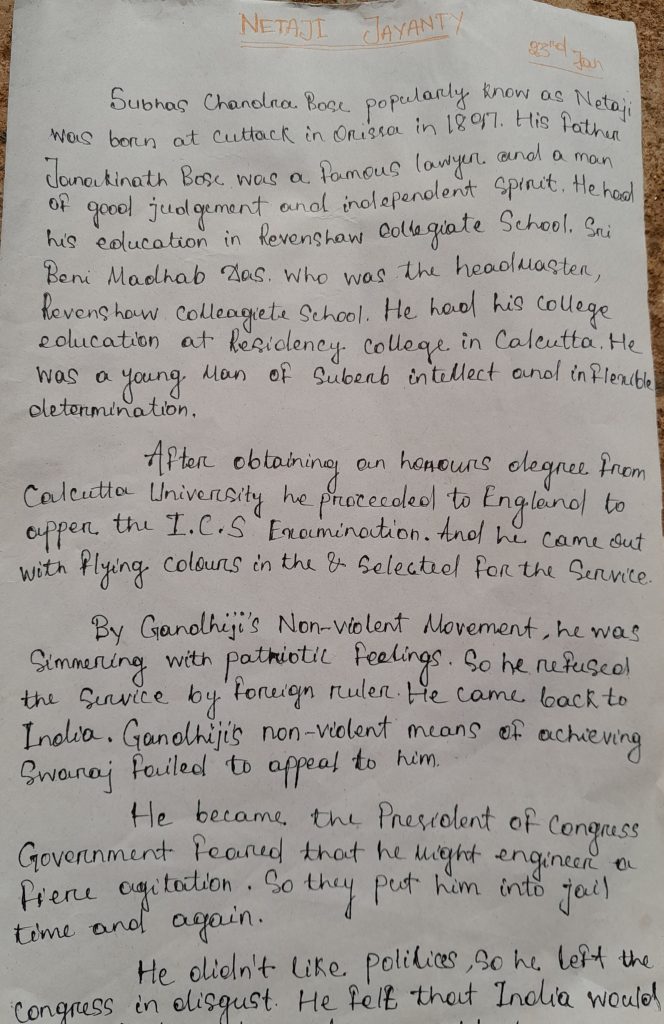 NETAJI JAYANTY
23rd Jan
Subhas Chandra Bose popularly know as Netaji
was born at Cuttack in Orissa in 1897. His Father
Janakinath Bose was a famous lawyer and a man
of good judgement and independent spirit. He had
his education in Revenshaw Collegiate School. Sri
Beni Madhab Das. who was the headmaster,
Revenshaw colleagiete School. He had his college
education at Residency college in Calcutta. He
was a young Man of Suberb intellect and inflexible
determination.
After obtaining an honours degree from
Calcutta University he proceeded to England to
apper the I.C.S Examination. And he came out
with flying colours in the & Selected for the Service.
By Gandhiji's Non-violent Movement, he was
Simmering with patriotic feelings. So he refused
the Service by foreign ruler. He came back to
India. Gandhiji's non-violent means of achieving
Swaraj failed to appeal to him.
He became the President of Congress
Government feared that he might engineer a
fierce agitation. So they put him into jail
time and again.
He didn't like politices, So he left the
congress in disgust. He felt that India would